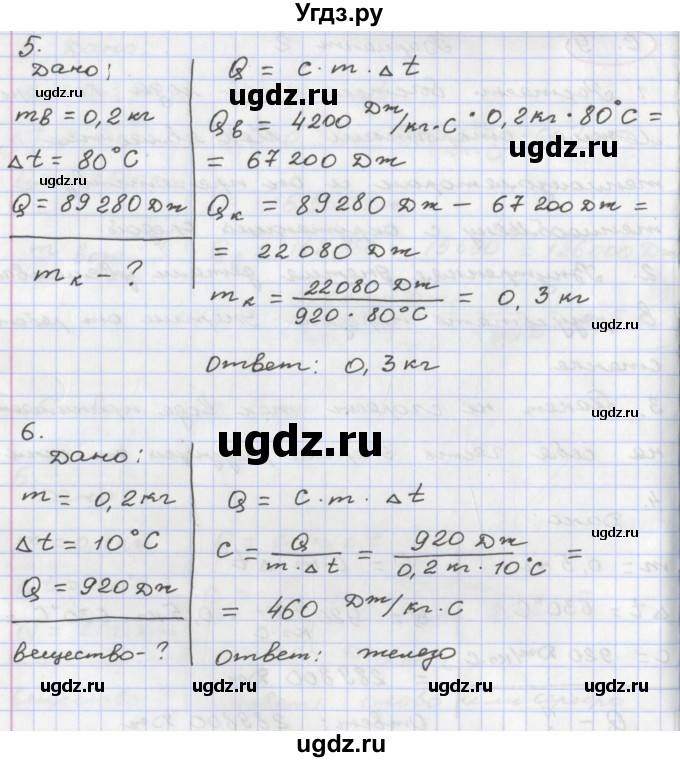 Угдз.ру
5.
Дано:
mв = 0,2 кг
Δt = 80°C
Q = 89 280 Дж
mк - ?
Q = c · m · Δt
Qв = 4200 Дж/кг·С · 0,2 кг · 80°С =
= 67 200 Дж
Qк = 89280 Дж - 67 200 Дж =
= 22 080 Дж
mк = 22080 Дж / 920 · 80°С = 0,3 кг
Ответ: 0,3 кг
6.
Дано:
m = 0,2 кг
Δt = 10°C
Q = 920 Дж
вещество - ?
Q = c · m · Δt
c = Q / m · Δt = 920 Дж / 0,2 кг · 10°С =
= 460 Дж/кг·С
Ответ: железо
ugdz.ru
ugdz.ru
ugdz.ru
ugdz.ru
ugdz.ru
ugdz.ru
ugdz.ru
ugdz.ru
ugdz.ru
ugdz.ru
ugdz.ru
ugdz.ru
ugdz.ru
ugdz.ru